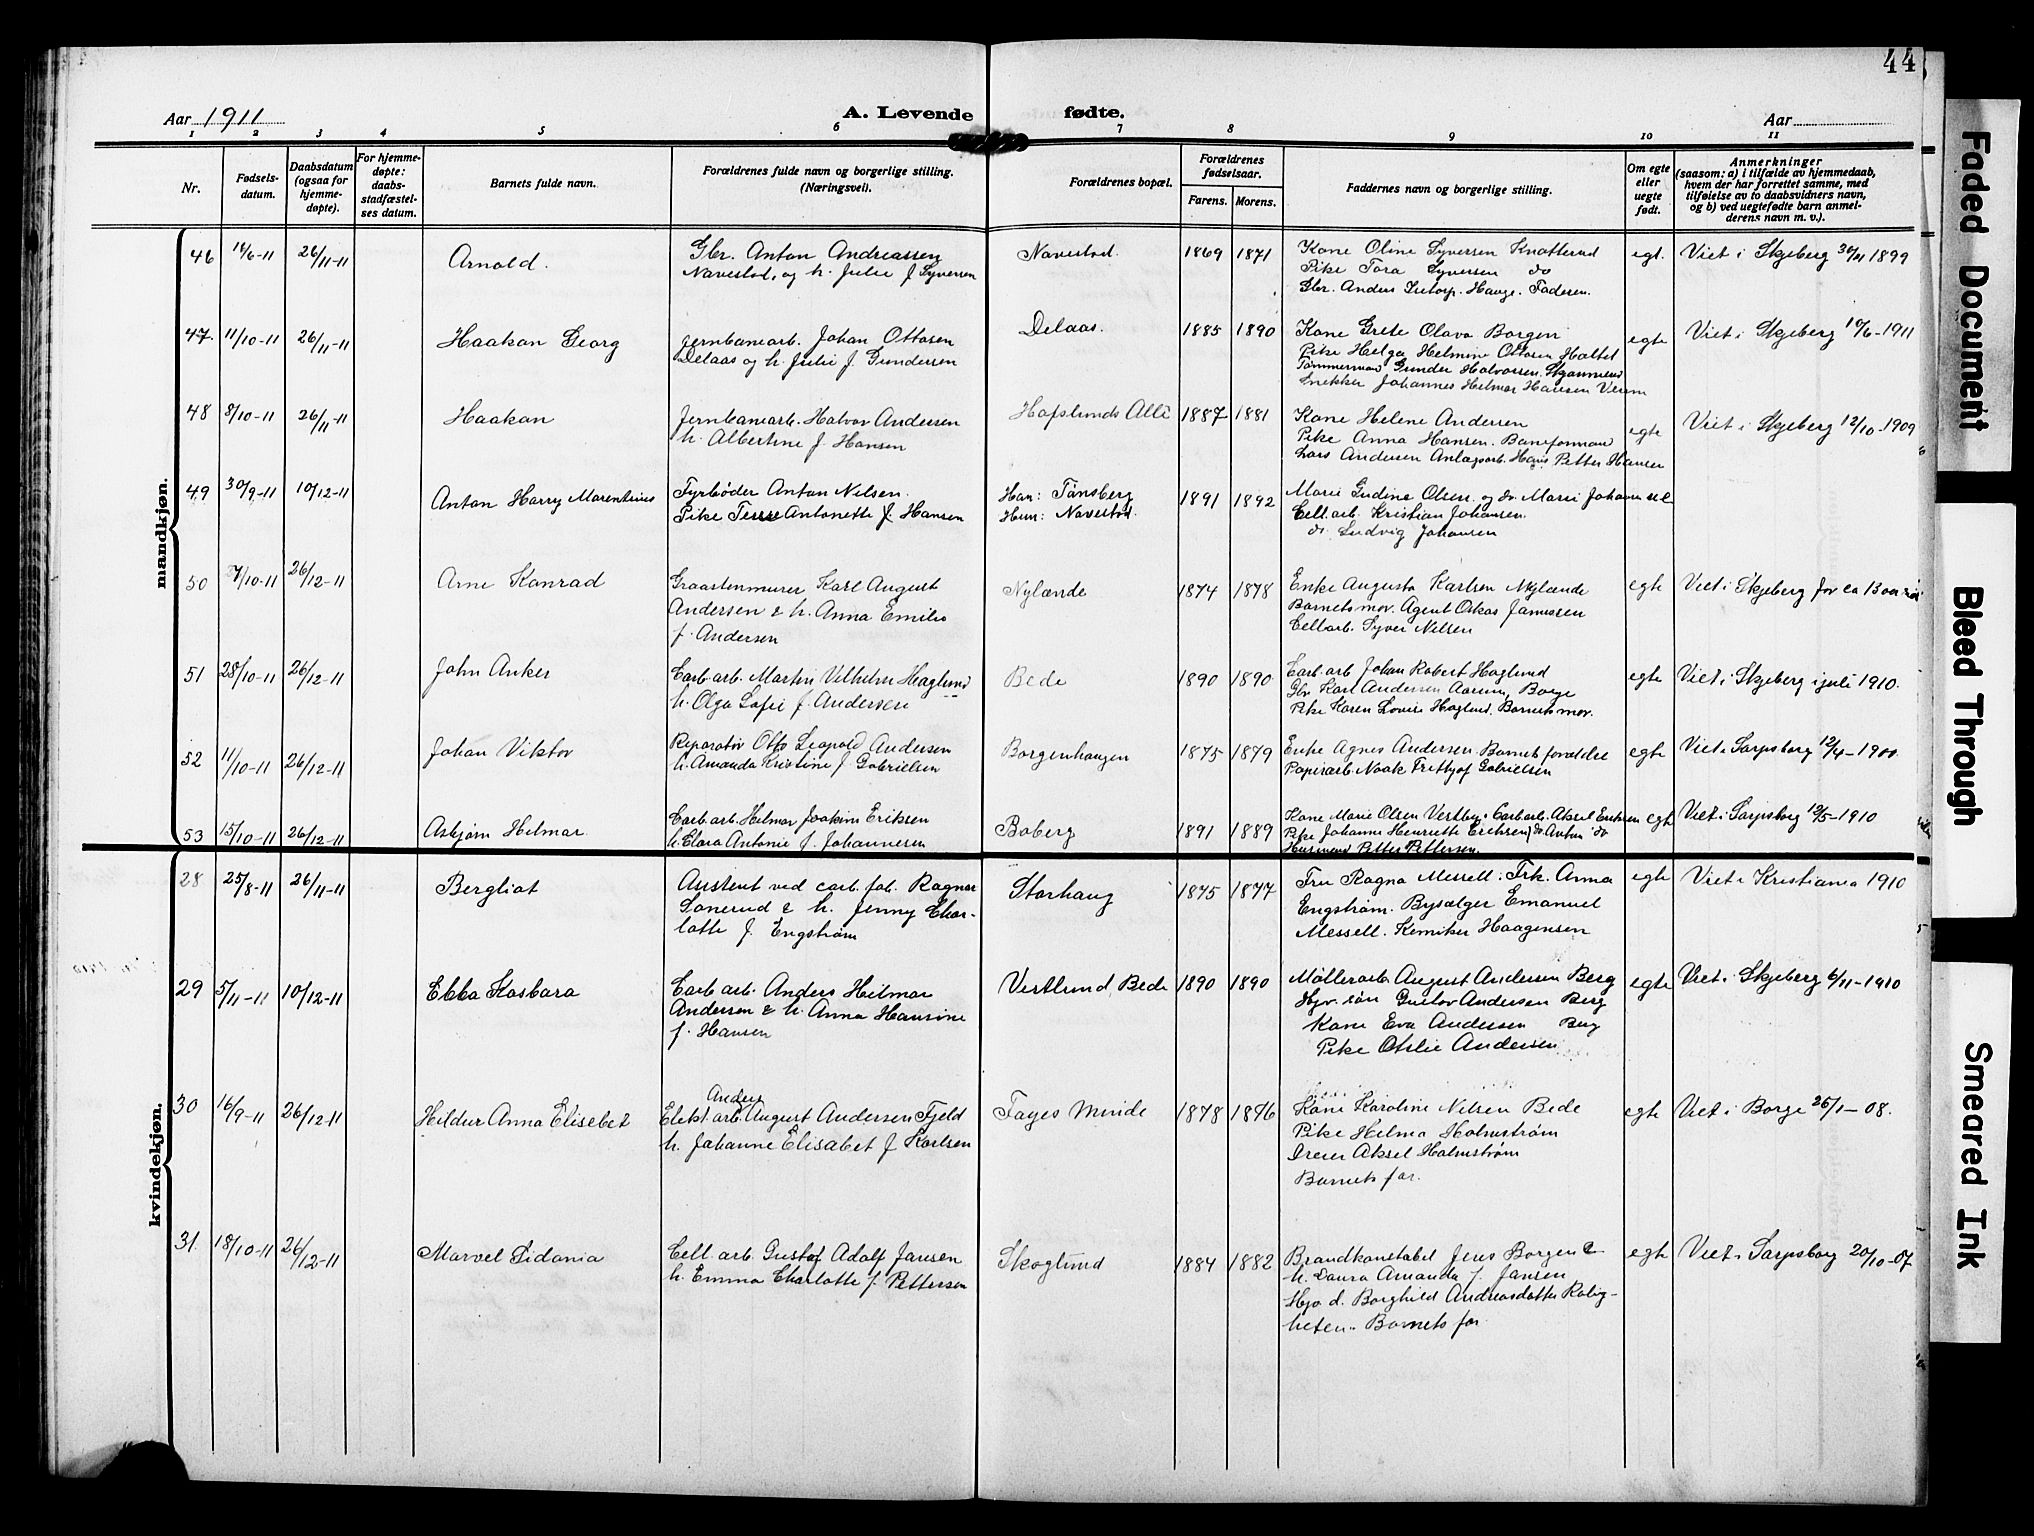 44
Aar 1911
A. Levende fødte.
Aar
1 2 3 4 5 6 7 8 9 10 11
Nr.
Fødsels-
datum.
Daabsdatum
(ogsaa for
hjemme-
døpte).
For hjemme-
døpte:
daabs-
stadfæstel-
ses datum.
Barnets fulde navn.
Forældrenes fulde navn og borgerlige stilling.
(Næringsvei).
Forældrenes bopæl.
Forældrenes
fødselsaar.
Farens. Morens.
Faddernes navn og borgerlige stilling.
Om egte
eller
uegte
født.
Anmerkninger
(saasom: a) i tilfælde av hjemmedaab,
hvem der har forrettet samme, med
tilføielse av to daabsvidners navn,
og b) ved uegtefødte barn anmel-
derens navn m. v.).
mandkjøn.
46 14/6-11 26/11-11 Arnold.
Gbr. Anton Andreassen
Navestad, og h. Julie f Syversen
Navestad. 1869 1871
Kone Oline Syversen Knatterud
Pike Tora Syversen do
Gbr. Anders Tretorp. Hauge. Faderen.
egt. Viet i Skjeberg 30/11 1899
47. 11/10-11 26/11-11 Haakon Georg
jernbanearb. Johan Ottosen
Delaas og h. Julie f. Gundersen
Delaas. 1885 1890
Kone Grete Olava Borgen
Pike Helga Helmine Ottosen Haltet
Tømmermand Gunder Halvorsen.
Snekker Johannes Helmer Hansen
egte Viet i Skjeberg 10/6-1911
48 8/10-11 26/11-11 Haakon
Jernbanearb. Halvor Andersen
h. Albertine f. Hansen
Hafslunds Allé 1887 1881
Kone Helene Andersen
Pike Anna Hansen. Baneformand
Lars Andersen Anlægsarb. Hans Petter Hansen
egte Viet i Skjeberg 12/10-1909
49 30/9-11 10/12-11 Anton Harry Marentius
Fyrbøder Anton Nilsen.
Pike Antonette f. Hansen
Han: Tønsberg
Hun: Navestad. 1891 1892
Marie Gudine Olsen og do. Marie Johansen
Cell. arb. Kristian Johansen.
do. Ludvig Johansen
ue
50 7/10-11 26/12-11 Arne Konrad
Graastenmurer Karl August
Andersen & h. Anna Emilie
f. Andersen
Nylænde 1874 1878
Enke Augusta Karlsen Nylænde
Barnets mor. Agent Oskar Jamissen
Cellarb. Syver Nilsen
egte Viet i Skjeberg for ca 13 aar
51 28/10-11 26/12-11 John Anker
Carb. arb. Martin Vilhelm Haglund
h. Olga Sofie f. Andersen
Bede 1890 1890
Carb. arb Johan Robert Haglund
Gbr Karl Andersen Aarum, Borge
Pike Karen Lovise Haglund. Barnets mor.
egte Viet i Skjeberg i juli 1910.
52 11/10-11 26/12-11 Johan Viktor
Reparatør Otto Leopold Andersen
h. Amanda Kristine f. Gabrielsen
Borgenhaugen 1875 1879
Enke Agnes Andersen. Barnets forældre
Papirarb. Noak Frithjof Gabrielsen
egte Viet i Sarpsborg 12/4-1900
53 15/10-11 26/12-11 Asbjørn Helmar
Carb. arb. Helmar Joakim Eriksen
h. Clara Antonie f. Johannesen
Boberg 1891 1889
Kone Marie Olsen Vestby. Carbarb. Aksel Eriksen
Pike Johanne Henriette Eriksen, do Anton do
Husmand Petter Pettersen.
egte Viet i Sarpsborg 12/5-1910
kvindekjøn.
28 25/8-11 26/11-11 Bergliot
Assistent ved carb. fab. Ragnar
Sonerud & h. Jenny Char-
lotte f. Engstrøm
Storhaug 1875 1877
Fru Ragna Messell. Frk. Anna
Engstrøm. Bysælger Emanuel
Messell. Kemiker Haagensen
egte Viet i Kristiania 1910
29 5/11-11 10/12-11 Ebba Kasbara
Carb. arb. Anders Hilmar
Andersen & h. Anna Hansine
f. Hansen
Vestlund Bede 1890 1890
Møllerarb August Andersen Berg
Gustav Andersen Berg
Kone Eva Andersen Berg
Pike Otilie Andersen
egte Viet i Skjeberg 6/11-1910
30 16/9-11 26/12-11 Hildur Anna Elisebet
Anders
Elekt. arb. August Andersen Fjeld
h. Johanne Elisabet f Karlsen
Fagesminde 1878 1876
Kone Karoline Nilsen Bede
Pike Hilma Holmstrøm
Dreier Aksel Holmstrøm
Barnets far.
egte Viet i Borge 26/1-08.
31. 18/10-11 26/12-11 Marvel Sidonia
Cell. arb. Gustaf Adolf Jansen
h. Emma Charlotte f. Pettersen
Skoglund 1884 1882
Brandkonstabel Jens Borgen &
h. Laura Amanda f. Jansen
Hjv. d. Borghild Andreasdatter Rolig-
heten. Barnets far.
egte Viet i Sarpsborg 20/10-07
Faded Document
Bleed Through
Smeared Ink